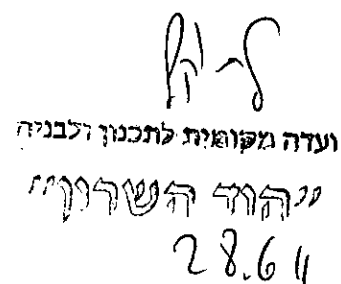 ועדה מקומית לתכנון ולבניה
"הוד השרון"
28.6 11